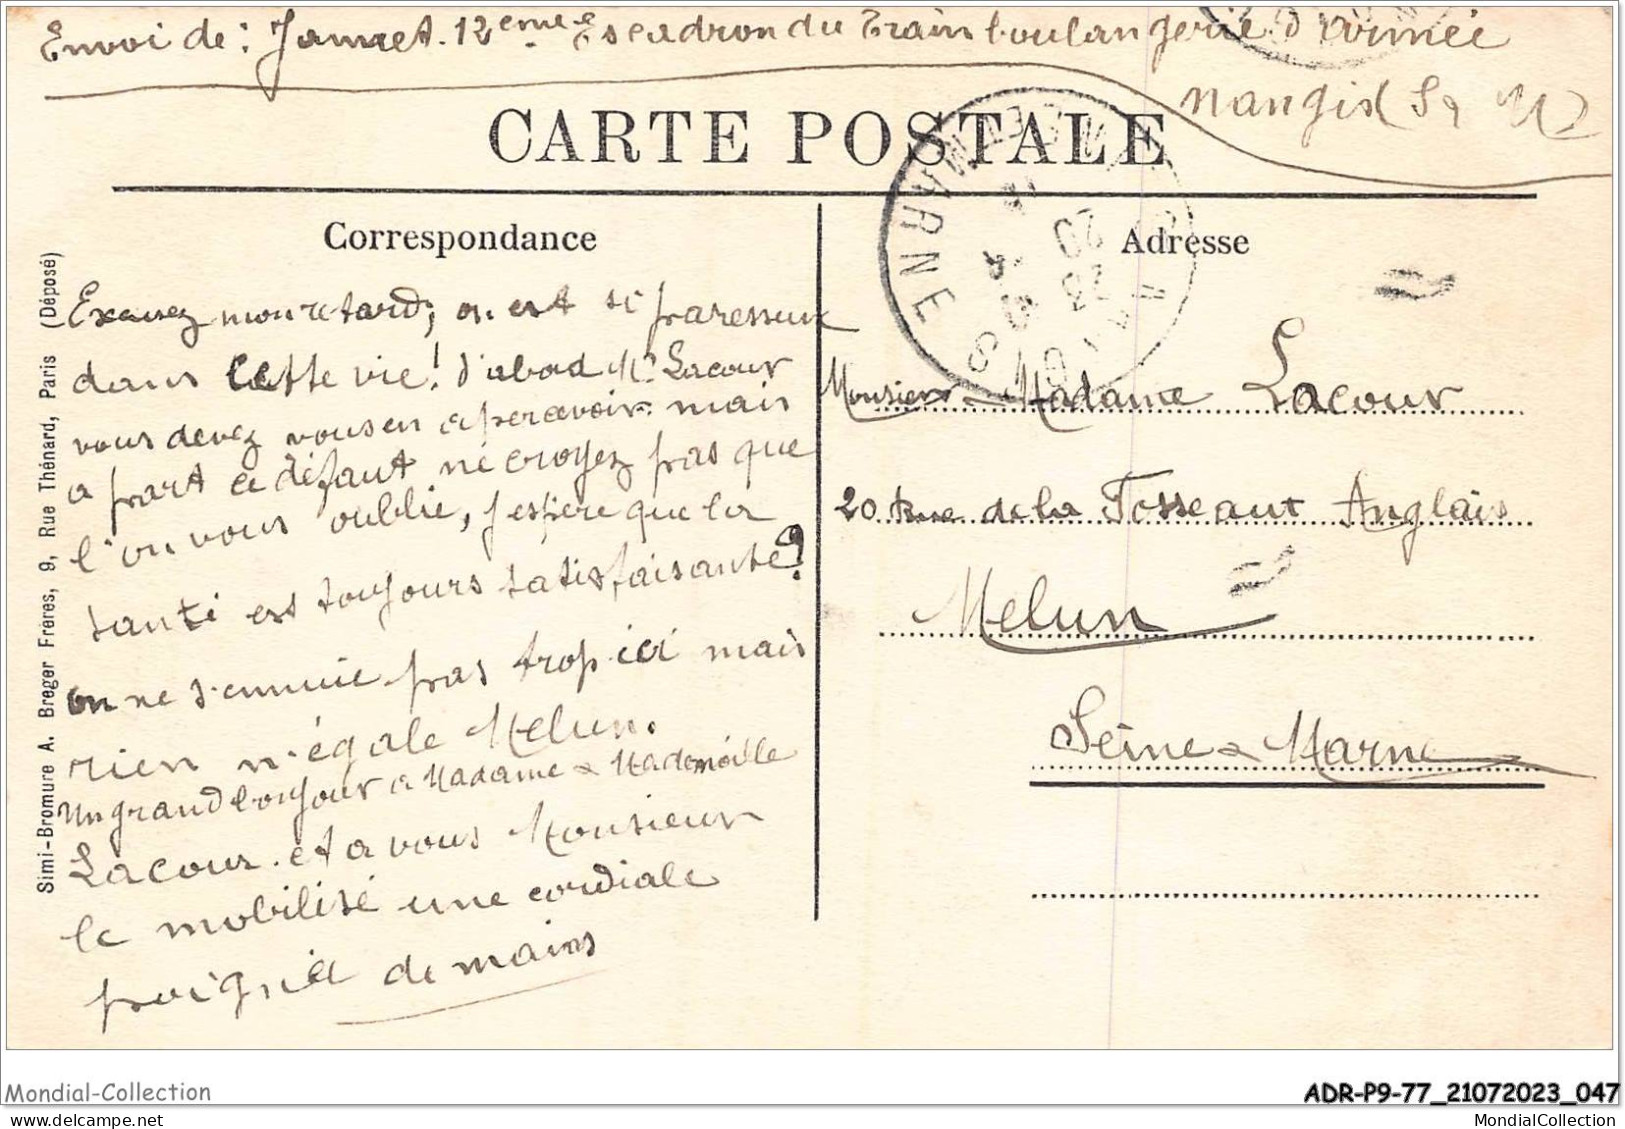 Envoi de : Jamet. 12eme Escadron du Train boulangerie d'Armée
Nangis (S & M)
CARTE POSTALE
Correspondance
Adresse
Excusez mon retard, on est si paresseux
dans cette vie! d'abord Mr Lacour
vous devez vous en apercevoir. mais
a part ce défaut ne croyez pas que
l'on vous oublie, j'espère que la
santé est toujours satisfaisante?
on ne s'ennuie pas trop ici mais
rien n'égale Melun.
Un grand bonjour a Madame & Mademoislle
Lacour. et a vous Monsieur
le mobilisé une cordiale
poignée de mains
Monsieur & Madame Lacour
20 Rue de la Fosse aux Anglais
Melun
Seine & Marne
MARNE
Simi-Bromure A. Breger Frères, 9, Rue Thénard, Paris (Déposé)
Mondial-Collection
ADR-P9-77_21072023_047
MondialCollection
delcampe.net